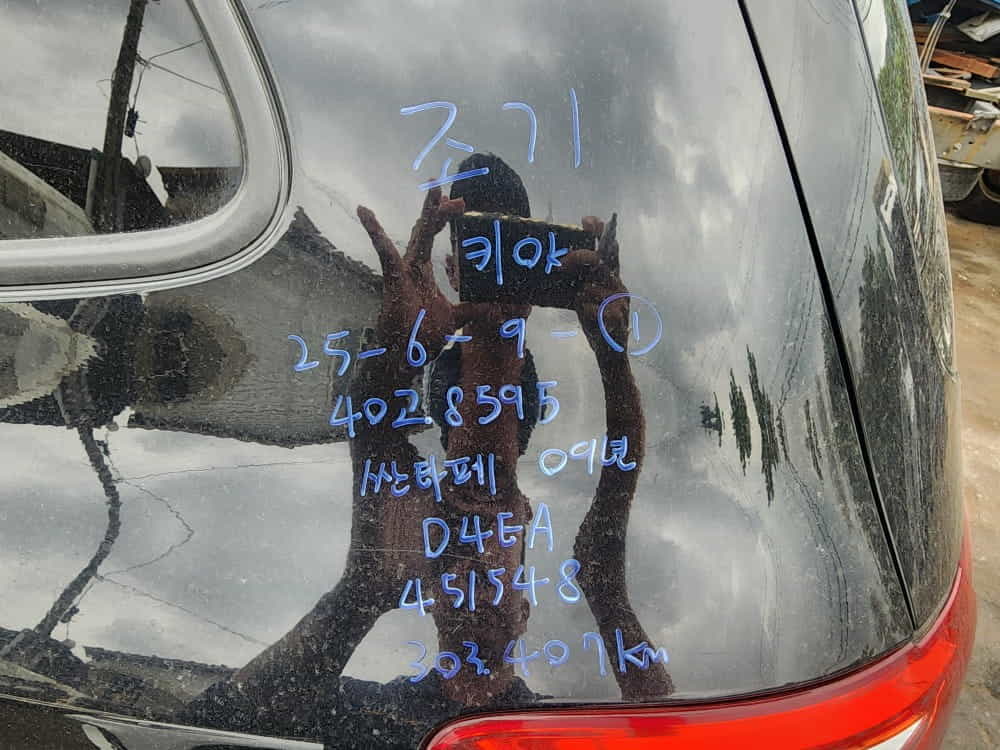 조기
키야
25-6-9-①
40고.8595
싼타페 09년
D4EA
451548
303.407km